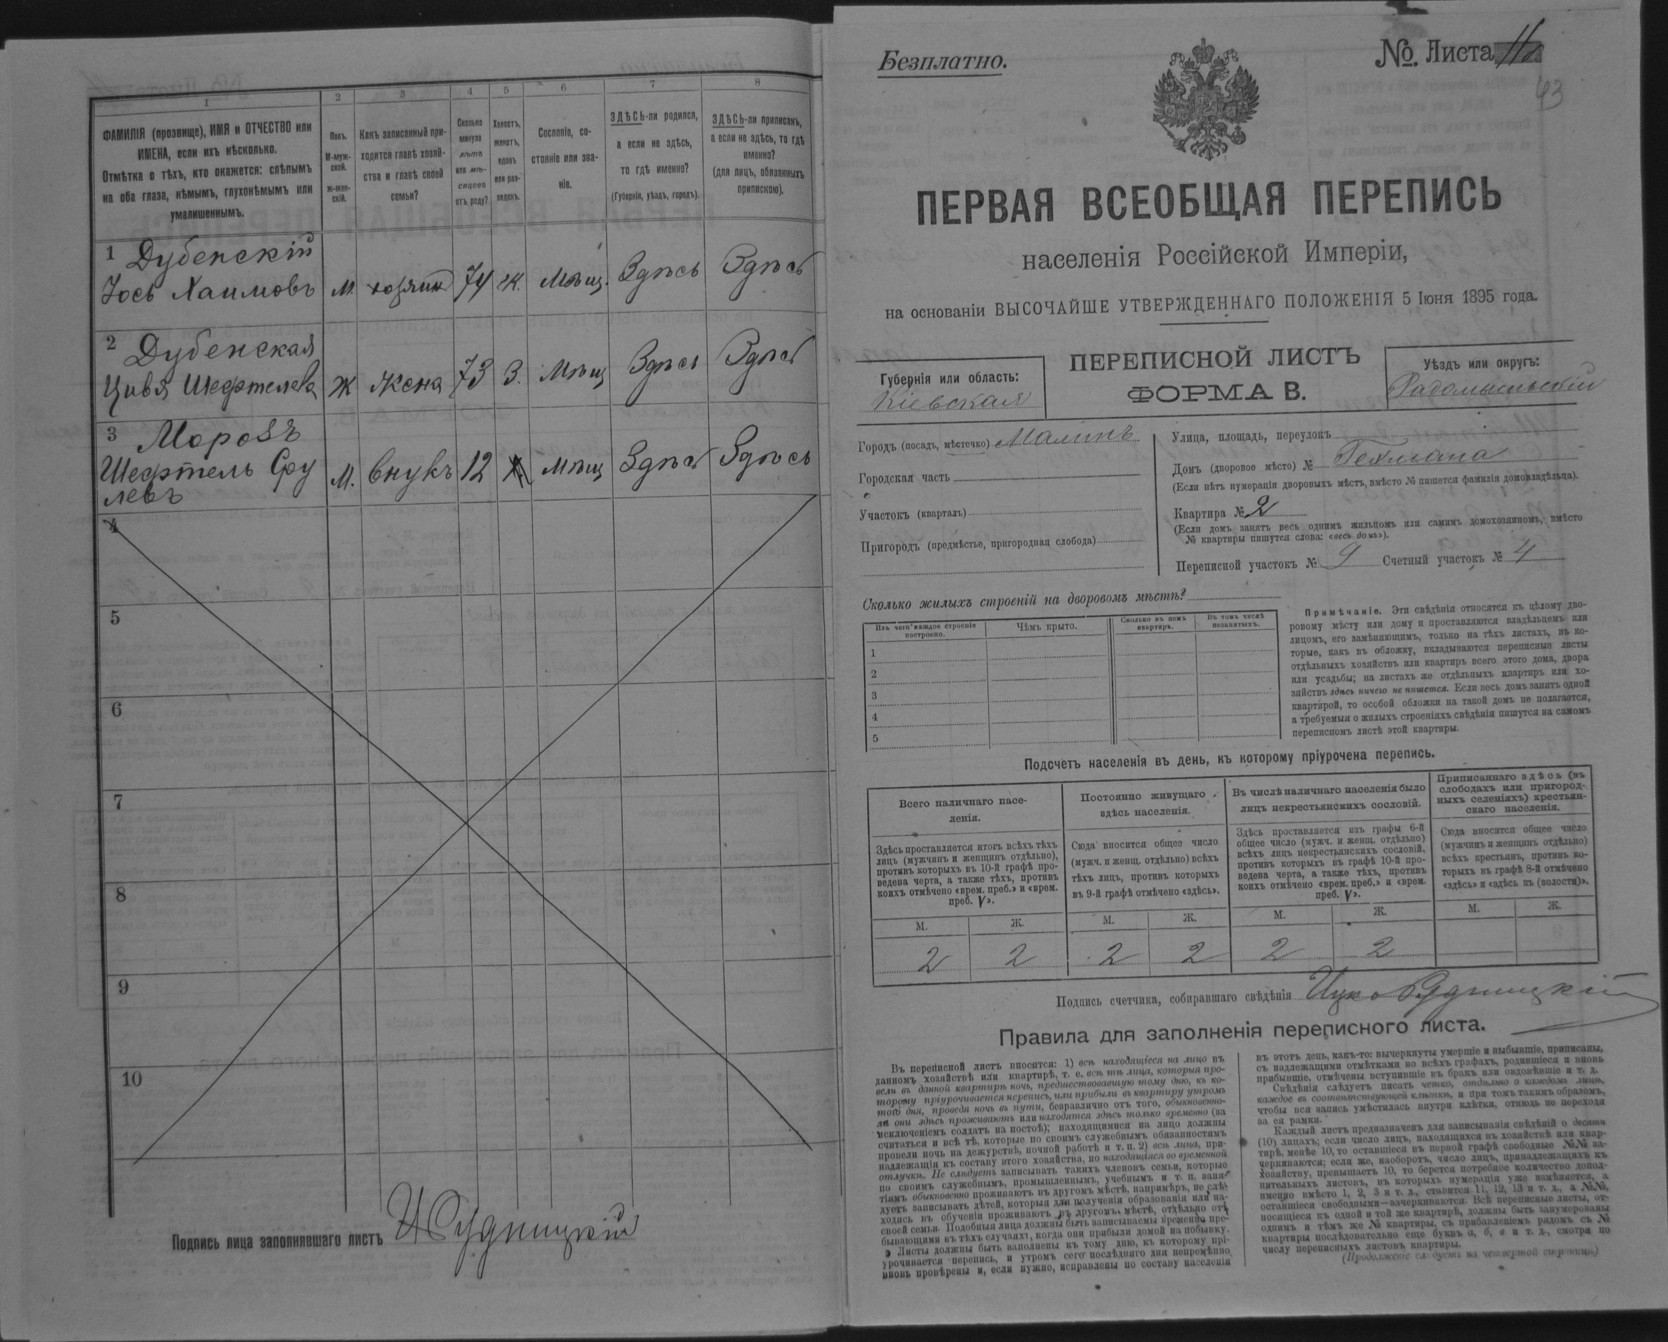 1 2 3 4 5 6 7 8
ФАМИЛІЯ (прозвище), ИМЯ и ОТЧЕСТВО или
ИМЕНА, если ихъ нѣсколько.
Отмѣтка о тѣхъ, кто окажется: слѣпымъ
на оба глаза, нѣмымъ, глухонѣмымъ или
умалишеннымъ.
Полъ.
М-муж-
ской.
Ж-жен-
скій.
Какъ записанный при-
ходится главѣ хозяй-
ства и главѣ своей
семьи?
Сколько
минуло
лѣтъ
или мѣ-
сяцевъ
отъ роду?
Холостъ,
женатъ,
вдовъ
или раз-
веденъ.
Сословіе, со-
стояніе или зва-
ніе.
ЗДѢСЬ-ли родился,
а если не здѣсь,
то гдѣ именно?
(Губернія, уѣздъ, городъ).
ЗДѢСЬ-ли приписанъ,
а если не здѣсь, то гдѣ
именно?
(для лицъ, обязанныхъ
припискою).
1 Дубенскій
Іось Хаимовъ М. хозяинъ 74 Ж. Мѣщ. Здѣсь Здѣсь
2 Дубенская
Цивя Шефтелева Ж Жена 73 З. Мѣщ Здѣсь Здѣсь
3 Морозъ
Шефтель Сру
левъ М. внукъ 12 Х Мѣщ Здѣсь Здѣсь
4
5
6
7
8
9
10
Подпись лица заполнявшаго листъ
Безплатно.
№ Листа 11
43
ПЕРВАЯ ВСЕОБЩАЯ ПЕРЕПИСЬ
населенія Россійской Имперіи,
на основаніи ВЫСОЧАЙШЕ УТВЕРЖДЕННАГО ПОЛОЖЕНІЯ 5 Іюня 1895 года.
Губернія или область:
Кіевская
ПЕРЕПИСНОЙ ЛИСТЪ
ФОРМА В.
Уѣздъ или округъ:
Радомысльскій
Городъ (посадъ, мѣстечко) Малинъ
Городская часть
Участокъ (кварталъ)
Пригородъ (предмѣстье, пригородная слобода)
Улица, площадь, переулокъ
Домъ (дворовое мѣсто) № Гехмана
(Если нѣтъ нумераціи дворовыхъ мѣстъ, вмѣсто № пишется фамилія домовладѣльца).
Квартира № 2
(Если домъ занятъ весь однимъ жильцомъ или самимъ домохозяиномъ, вмѣсто
№ квартиры пишутся слова: «весь домъ»).
Переписной участокъ № 9 Счетный участокъ № 4
Сколько жилыхъ строеній на дворовомъ мѣстѣ?
Изъ чего каждое строеніе
построено.
Чѣмъ крыто.
Сколько въ немъ
квартиръ.
Въ томъ числѣ
незанятыхъ.
1
2
3
4
5
Примѣчаніе. Эти свѣдѣнія относятся къ цѣлому дво-
ровому мѣсту или дому и проставляются владѣльцемъ или
лицомъ, его замѣняющимъ, только на тѣхъ листахъ, въ ко-
торые, какъ въ обложку, вкладываются переписные листы
отдѣльныхъ хозяйствъ или квартиръ всего этого дома, двора
или усадьбы; на листахъ же отдѣльныхъ квартиръ или хо-
зяйствъ здѣсь ничего не пишется. Если весь домъ занятъ одной
квартирой, то особой обложки на такой домъ не полагается,
а требуемыя о жилыхъ строеніяхъ свѣдѣнія пишутся на самомъ
переписномъ листѣ этой квартиры.
Подсчетъ населенія въ день, къ которому пріурочена перепись.
Всего наличнаго насе-
ленія.
Здѣсь проставляется итогъ всѣхъ тѣхъ
лицъ (мужчинъ и женщинъ отдѣльно),
противъ которыхъ въ 10-й графѣ про-
ведена черта, а также тѣхъ, противъ
коихъ отмѣчено «врем. преб.» и «врем.
преб. V».
Постоянно живущаго
здѣсь населенія.
Сюда вносится общее число
(мужч. и женщ. отдѣльно) всѣхъ
тѣхъ лицъ, противъ которыхъ
въ 9-й графѣ отмѣчено «здѣсь».
Въ числѣ наличнаго населенія было
лицъ некрестьянскихъ сословій.
Здѣсь проставляется изъ графы 6-й
общее число (мужч. и женщ. отдѣльно)
всѣхъ лицъ некрестьянскихъ сословій,
противъ которыхъ въ графѣ 10-й про-
ведена черта, а также тѣхъ, противъ
коихъ отмѣчено «врем. преб.» и «врем.
преб. V».
Приписаннаго здѣсь (въ
слободахъ или пригород-
ныхъ селеніяхъ) крестьян-
скаго населенія.
Сюда вносится общее число
(мужчинъ и женщинъ отдѣльно)
всѣхъ крестьянъ, противъ ко-
торыхъ въ графѣ 8-й отмѣчено
«здѣсь» и «здѣсь къ (волости)».
М. Ж. М. Ж. М. Ж. М. Ж.
2 2 2 2 2 2
Подпись счетчика, собиравшаго свѣдѣнія
Правила для заполненія переписного листа.
Въ переписной листъ вносятся: 1) всѣ находящіеся на лицо въ
данномъ хозяйствѣ или квартирѣ, т. е. всѣ тѣ лица, которыя про-
вели въ данной квартирѣ ночь, предшествовавшую тому дню, къ ко-
торому пріурочивается перепись, или прибыли въ квартиру утромъ
того дня, проведя ночь въ пути, безразлично отъ того, обыкновенно-
ли они здѣсь проживаютъ или находятся здѣсь только временно (за
исключеніемъ солдатъ на постоѣ); находящимися на лицо должны
считаться и всѣ тѣ, которые по своимъ служебнымъ обязанностямъ
провели ночь на дежурствѣ, ночной работѣ и т. п. 2) всѣ лица, при-
надлежащія къ составу этого хозяйства, но находящіяся во временной
отлучкѣ. Не слѣдуетъ записывать такихъ членовъ семьи, которые
по своимъ служебнымъ, промышленнымъ, учебнымъ и т. п. заня-
тіямъ обыкновенно проживаютъ въ другомъ мѣстѣ, напримѣръ, не слѣ-
дуетъ записывать дѣтей, которыя для полученія образованія или на-
ходясь въ обученіи проживаютъ въ другомъ мѣстѣ, отдѣльно отъ
своей семьи. Подобныя лица должны быть записываемы временно пре-
бывающими въ тѣхъ случаяхъ, когда они прибыли домой на побывку.
Листы должны быть заполнены къ тому дню, къ которому прі-
урочивается перепись, и утромъ сего послѣдняго дня непремѣнно
вновь провѣрены и, если нужно, исправлены по составу населенія
въ этотъ день, какъ-то: вычеркнуты умершіе и выбывшіе, приписаны,
съ надлежащими отмѣтками во всѣхъ графахъ, родившіеся и вновь
прибывшіе, отмѣчены вступившіе въ бракъ или овдовѣвшіе и т. д.
Свѣдѣнія слѣдуетъ писать четко, отдѣльно о каждомъ лицѣ,
каждое въ соотвѣтствующей клѣткѣ, и при томъ такимъ образомъ,
чтобы вся запись умѣстилась внутри клѣтки, отнюдь не переходя
за ея рамки.
Каждый листъ предназначенъ для записыванія свѣдѣній о десяти
(10) лицахъ; если число лицъ, находящихся въ хозяйствѣ или квар-
тирѣ, менѣе 10, то оставшіеся въ первой графѣ свободные №№ за-
черкиваются; если же, наоборотъ, число лицъ, принадлежащихъ къ
хозяйству, превышаетъ 10, то берется потребное количество допол-
нительныхъ листовъ, въ которыхъ нумерація уже измѣняется, а
именно вмѣсто 1, 2, 3 и т. д., ставится 11, 12, 13 и т. д., а №№,
оставшіеся свободными—зачеркиваются. Всѣ переписные листы, от-
носящіеся къ одной и той же квартирѣ, должны быть занумерованы
однимъ и тѣмъ же № квартиры, съ прибавленіемъ рядомъ съ №
квартиры послѣдовательно еще буквъ а, б, в и т. д., смотря по
числу переписныхъ листовъ квартиры.
(Продолженіе слѣдуетъ на четвертой страницѣ)